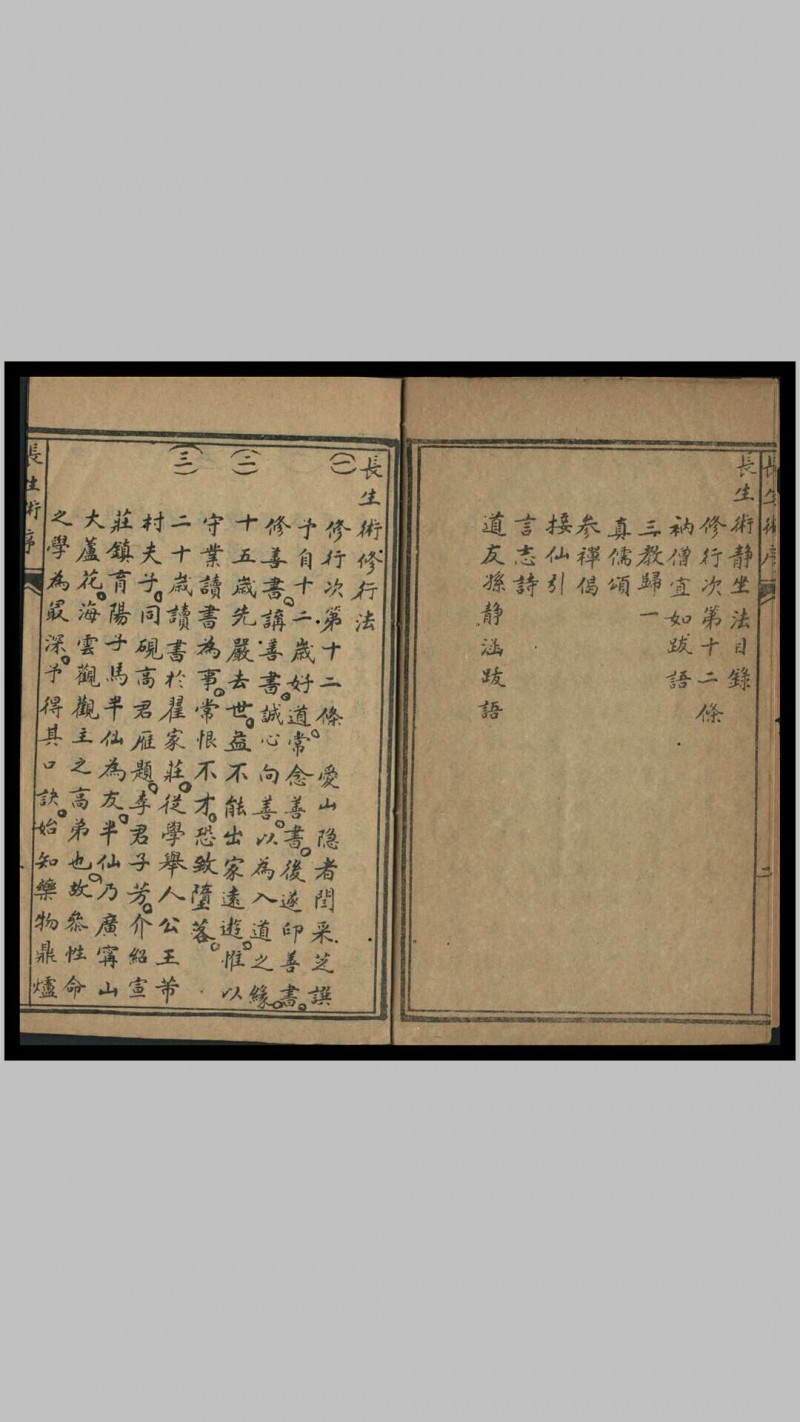 長生術靜坐法目錄
修行次第十二條
衲僧宜如跋語
三教歸一
真儒頌
參禪偈
接仙引
言志詩
道友孫静涵跋語
二
長生術修行法
修行次第十二條 愛山隐者閆采芝譔
(一)
予自十二歲好道。常念善書。後遂印善書。
修善書。講善書。誠心向善。以為入道之緣。
(二)
十五歲先嚴去世。益不能出家遠遊。惟以
守業讀書為事。常恨不才。恐致墮落。
(三)
二十歲讀書於翟家莊。從學舉人公王芾
村夫子。同硯高君雁題。李君子芳。介紹宣
莊鎮育陽子馬半仙為友。半仙乃廣寗山
大蘆花。海雲觀觀主之高弟也。故叅性命
之學為最深。予得其口訣。始知藥物鼎爐
長生術序